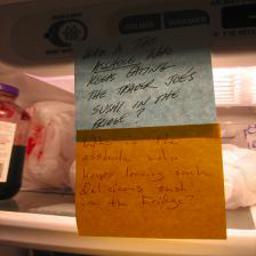 WHO IS THE
ASSHOLE WHO
KEEPS EATING
THE TRADER JOE'S
SUSHI IN THE
FRIDGE?
Who is the
asshole who
keeps leaving such
delicious sushi
in the fridge?